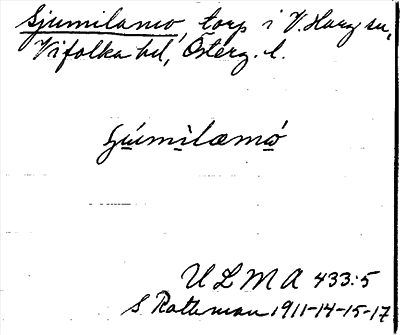 Sjumilamo, torp i V. Harg sn,
Vifolka hd, Österg. l.
ULMA 433:5
S Roteman 1911-14-15-17